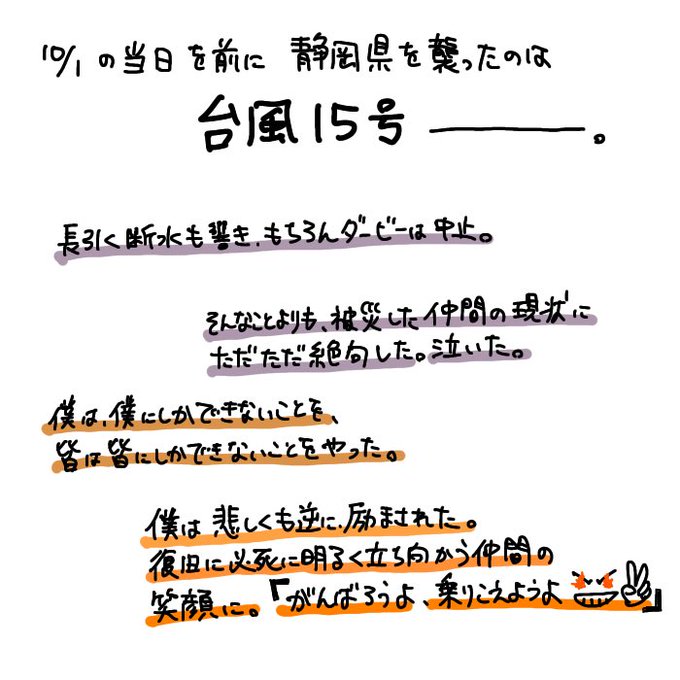 10/1の当日を前に 静岡県を襲ったのは
台風15号 ―――。
長引く断水も響き、もちろんダービーは中止。
そんなことよりも、被災した仲間の現状に
ただただ絶句した。泣いた。
僕は、僕にしかできないことを、
皆は皆にしかできないことをやった。
僕は悲しくも逆に、励まされた。
復旧に必死に明るく立ち向かう仲間の
笑顔に。「がんばろうよ、乗りこえようよ」